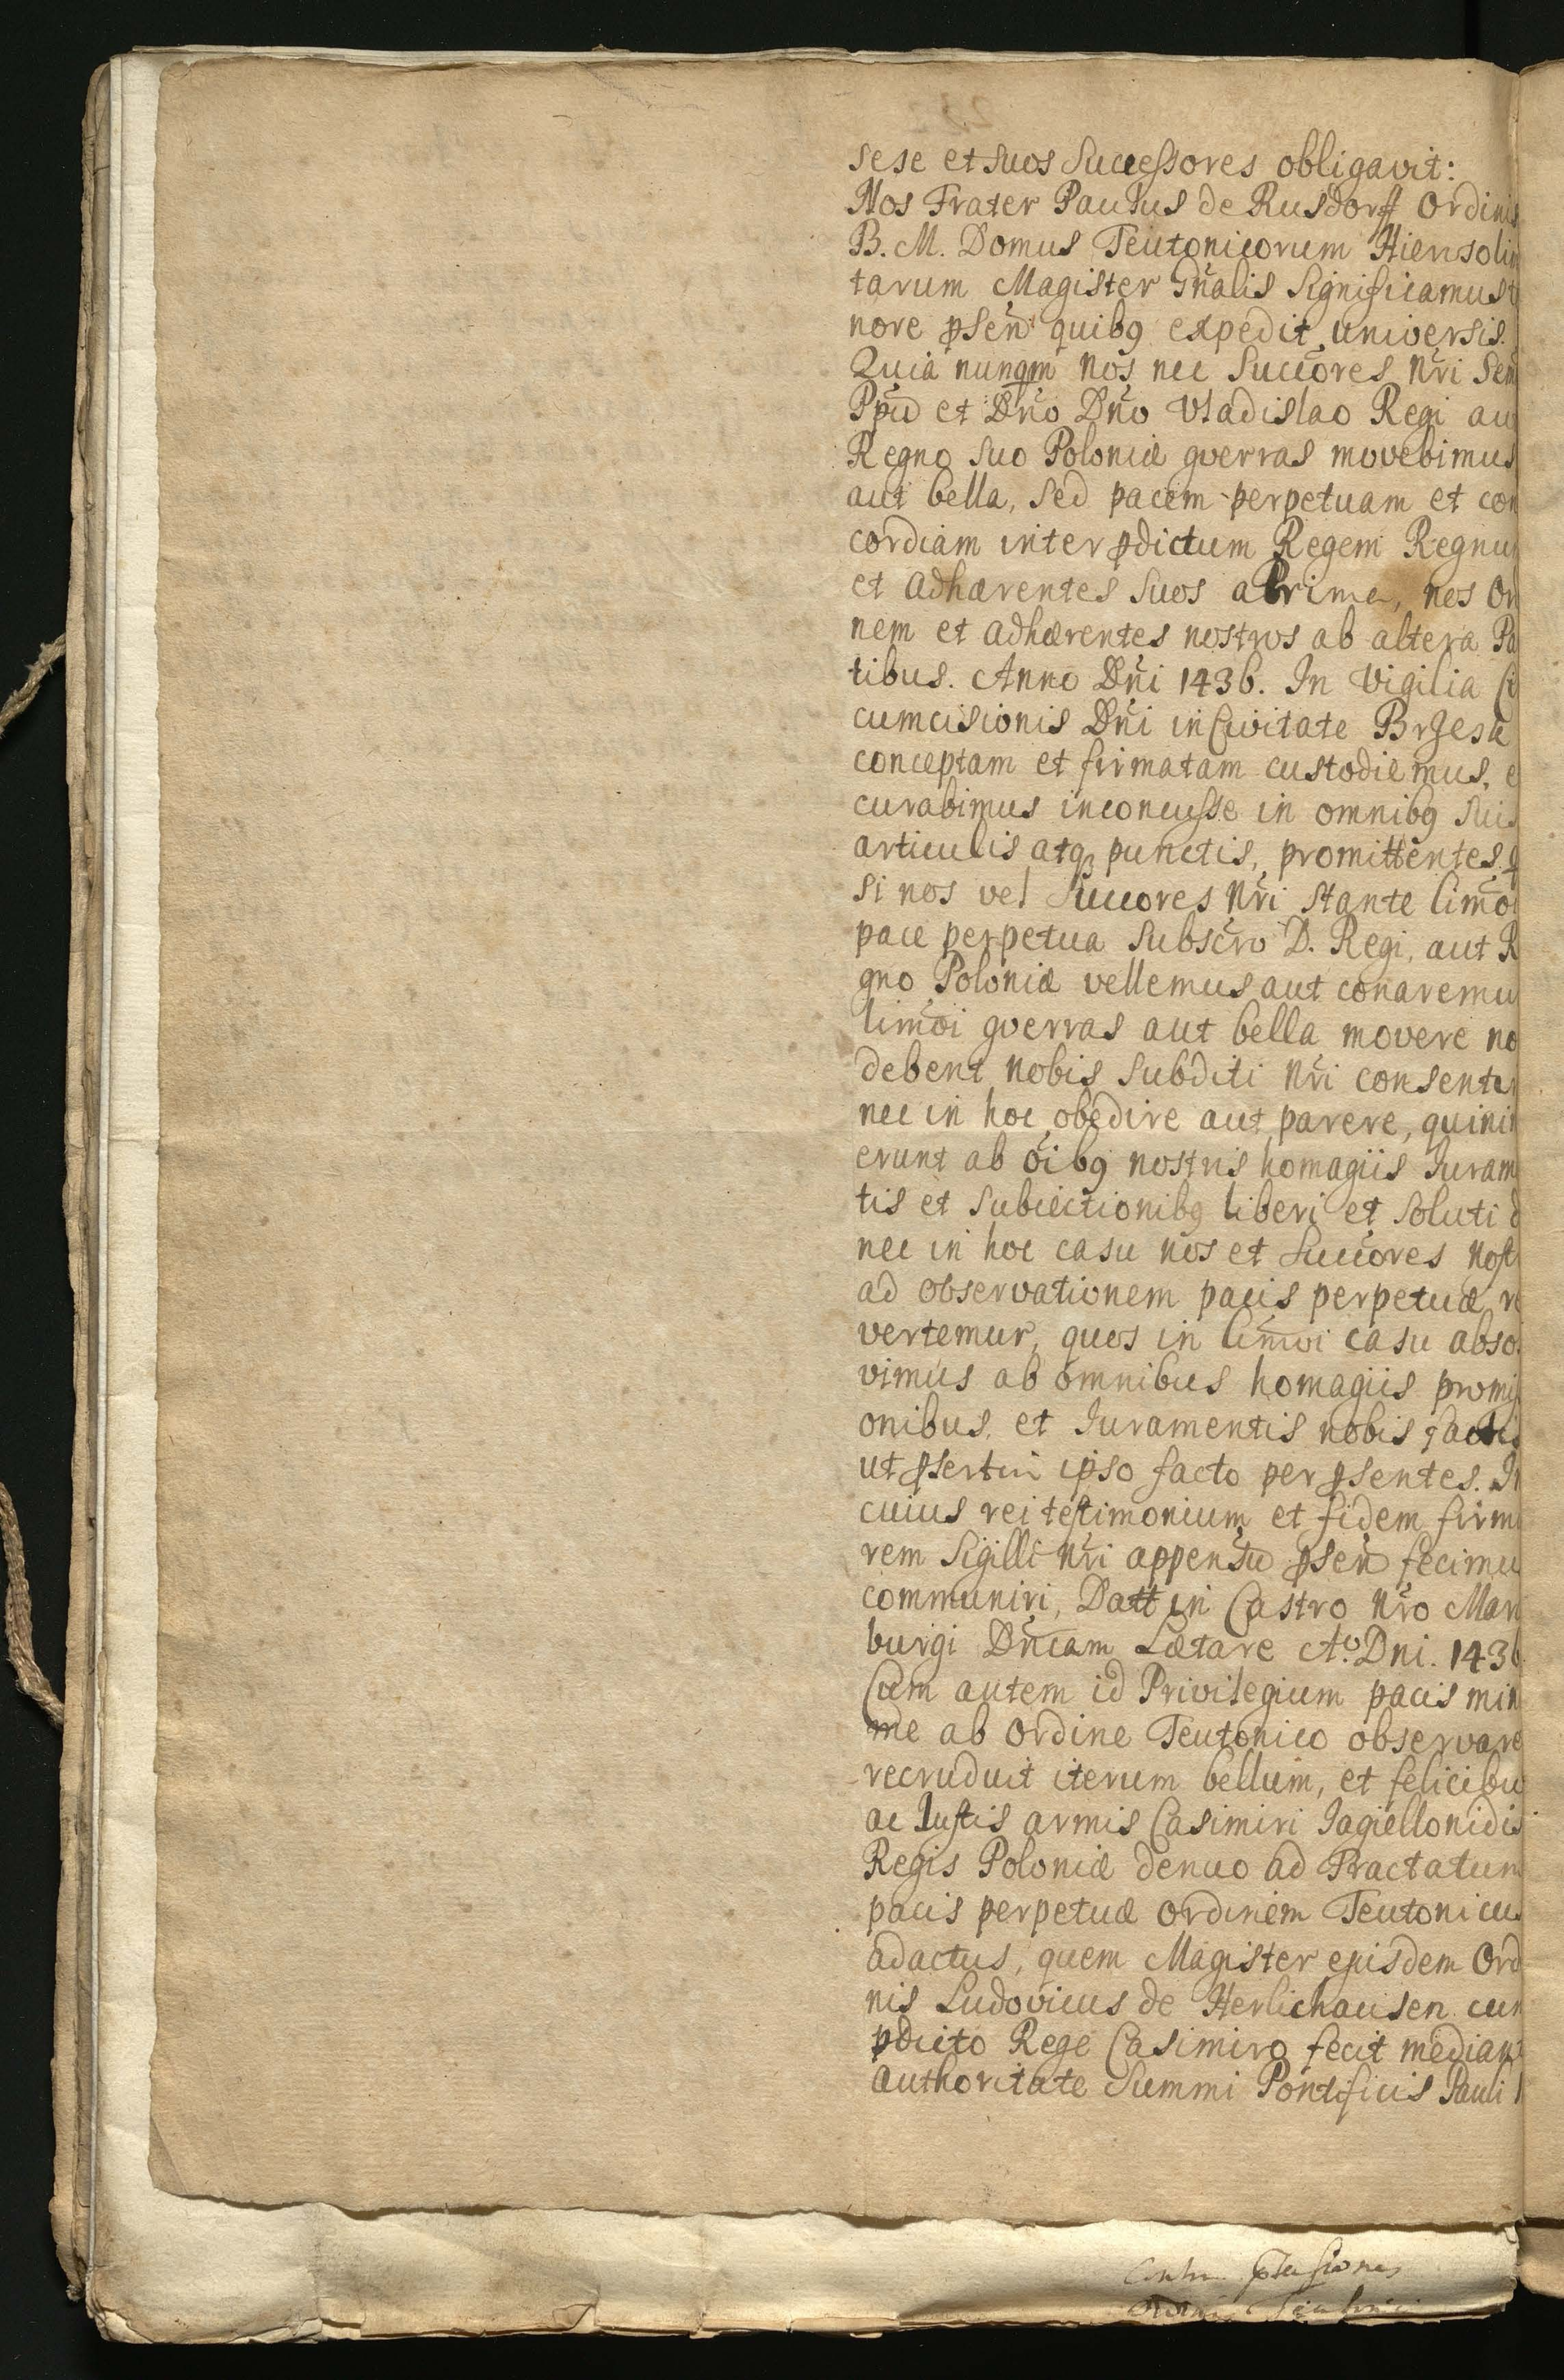 sese et suos Successores obligavit:
Nos Frater Paulus de Rusdorff Ordinis
B. M. Domus Teutonicorum Hiersolim
tarum Magister Gn̄alis Significamus t
nore p̄sen̄ quibꝯ expedit universis.
Quia nunqm̄ nos nec Succores nr̄i Sen
Ppū et Dn̄o Dn̄o Vladislao Regi aut
Regno suo Poloniæ gverras movebimus
aut bella, sed pacem perpetuam et con
cordiam inter p̄dictum Regem Regnum
et adhærentes suos a Prima, nos Or
nem et adhærentes nostros ab altera Pa
tibus. Anno Dn̄i 1436. In Vigilia Ci
cumcisionis Dn̄i in Civitate Brzesæ
conceptam et firmatam custodiemus, e
curabimus inconcusse in omnibꝯ suis
articulis atqꝫ punctis, promittentes q
si nos vel Succores nr̄i stante limōi
pace perpetua subscr̄o D. Regi, aut R
gno Poloniæ vellemus aut conaremu
limōi gverras aut bella movere no
debent nobis subditi nr̄i consentir
nec in hoc obedire aut parere, quinim
erunt ab ōibꝯ nostris homagiis Juram
tis et subiectionibꝯ liberi et soluti d
nec in hoc casu nos et Succores nost
ad observationem pacis perpetuæ re
vertemur, quos in limōi casu absol
vimus ab omnibus homagiis promiss
onibus, et Juramentis nobis factis
ut p̄sertim ipso facto per p̄sentes. In
cuius rei testimonium et fidem firmi
rem Sigilli nr̄i appensū p̄sen̄ fecimu
communiri, Datt in Castro nr̄o Mari
burgi Dn̄icam Lætare Aᵒ. Dni. 1436
Cum autem id Privilegium pacis min
me ab Ordine Teutonico observare
recruduit iterum bellum, et felicibu
ac Justis armis Casimiri Jagiellonidis
Regis Poloniæ denuo ad Tractatum
pacis perpetuæ Ordinem Teutonicu
adactus, quem Magister ejusdem Ord
nis Ludovicus de Herlichausen cum
p̄dicto Rege Casimiro fecit mediant
authoritate Summi Pontificis Pauli
Contra
Ordinis